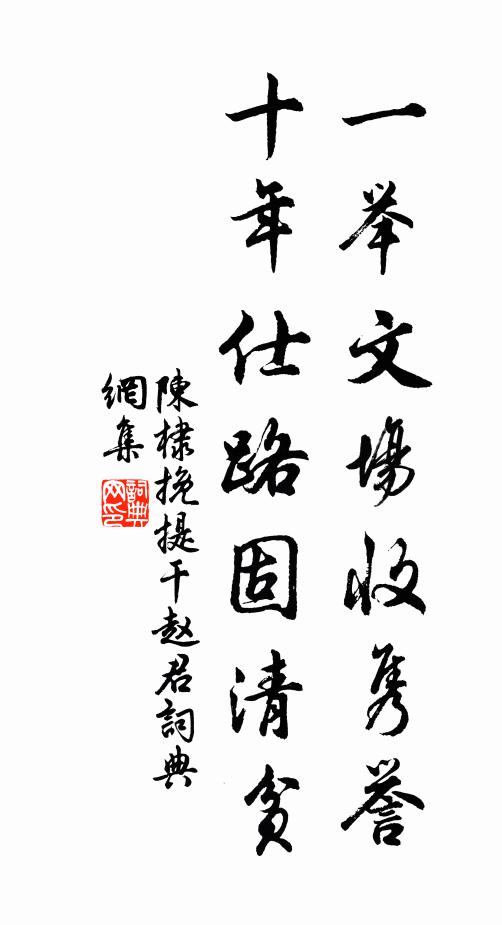 一举文場收隽誉
十年仕路固清貧
陳棣挽提干赵君詞典
網集
詞典
网印